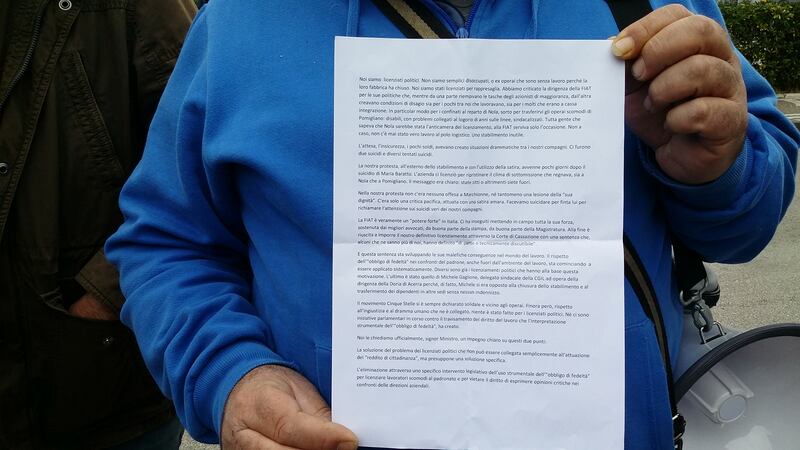 Noi siamo licenziati politici. Non siamo semplici disoccupati, o ex operai che sono senza lavoro perché la
loro fabbrica ha chiuso. Noi siamo stati licenziati per rappresaglia. Abbiamo criticato la dirigenza della FIAT
per le sue politiche che, mentre da una parte riempivano le tasche degli azionisti di maggioranza, dall'altra
creavano condizioni di disagio sia per i pochi tra noi che lavoravano, sia per i molti che erano a cassa
integrazione. In particolar modo per i confinati al reparto di Nola, sorto per trasferirvi gli operai scomodi di
Pomigliano: disabili, con problemi collegati al logorio di anni sulle linee, sindacalizzati. Tutta gente che
sapeva che Nola sarebbe stata l'anticamera del licenziamento, alla FIAT serviva solo l'occasione. Non a
caso, non c'è mai stato vero lavoro al polo logistico. Uno stabilimento inutile.
L'attesa, l'insicurezza, i pochi soldi, avevano creato situazioni drammatiche tra i nostri compagni. Ci furono
due suicidi e diversi tentati suicidi.
La nostra protesta, all'esterno dello stabilimento e con l'utilizzo della satira, avvenne pochi giorni dopo il
suicidio di Maria Baratto. L'azienda ci licenziò per ripristinare il clima di sottomissione che regnava, sia a
Nola che a Pomigliano. Il messaggio era chiaro: state zitti o altrimenti siete fuori.
Nella nostra protesta non c'era nessuna offesa a Marchionne, né tantomeno una lesione della "sua
dignità". C'era solo una critica pacifica, attuata con una satira amara. Facevamo suicidare per finta lui per
richiamare l'attenzione sui suicidi veri dei nostri compagni.
La FIAT è veramente un "potere forte" in Italia. Ci ha inseguiti mettendo in campo tutta la sua forza,
sostenuta dai migliori avvocati, da buona parte della stampa, da buona parte della Magistratura. Alla fine è
riuscita a imporre il nostro definitivo licenziamento attraverso la Corte di Cassazione con una sentenza che,
alcuni che ne sanno più di noi, hanno definito "di parte e tecnicamente discutibile".
E questa sentenza sta sviluppando le sue malefiche conseguenze nel mondo del lavoro. Il rispetto
dell'"obbligo di fedeltà" nei confronti del padrone, anche fuori dall'ambiente del lavoro, sta cominciando a
essere applicato sistematicamente. Diversi sono già i licenziamenti politici che hanno alla base questa
motivazione. L'ultimo è stato quello di Michele Gaglione, delegato sindacale della CGIL ad opera della
dirigenza della Doria di Acerra perché, di fatto, Michele si era opposto alla chiusura dello stabilimento e al
trasferimento dei dipendenti in altre sedi senza nessun indennizzo.
Il movimento Cinque Stelle si è sempre dichiarato solidale e vicino agli operai. Finora però, rispetto
all'ingiustizia e al dramma umano che ne è collegato, niente è stato fatto per i licenziati politici. Né ci sono
iniziative parlamentari in corso contro il travisamento del diritto del lavoro che l'interpretazione
strumentale dell'"obbligo di fedeltà", ha creato.
Noi le chiediamo ufficialmente, signor Ministro, un impegno chiaro su questi due punti:
La soluzione del problema dei licenziati politici che non può essere collegata semplicemente all'attuazione
del "reddito di cittadinanza", ma presuppone una soluzione specifica.
L'eliminazione attraverso uno specifico intervento legislativo dell'uso strumentale dell'"obbligo di fedeltà"
per licenziare lavoratori scomodi al padronato e per vietare il diritto di esprimere opinioni critiche nei
confronti delle direzioni aziendali.